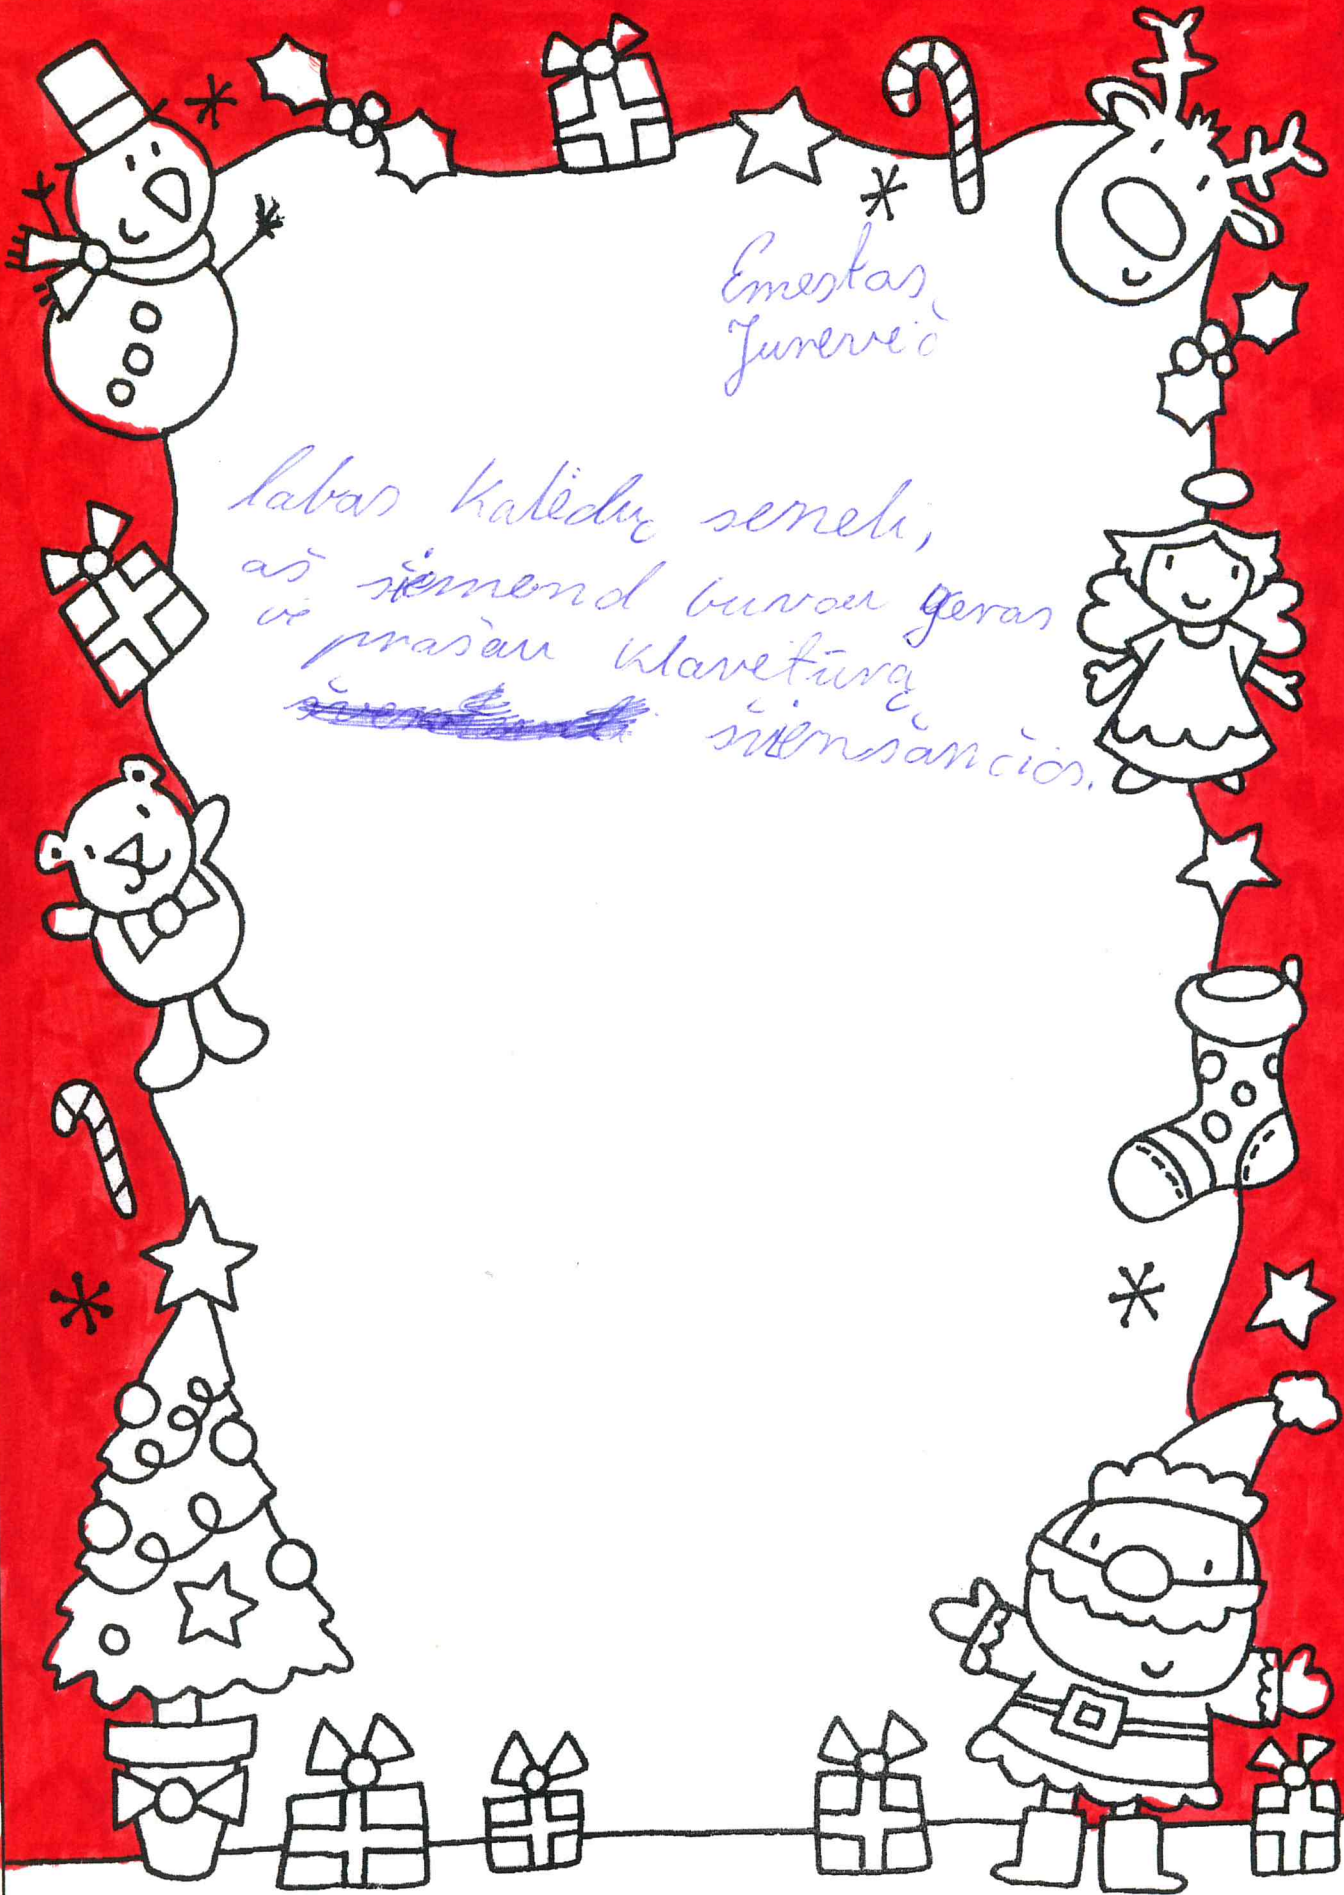 Ernestas
Jurevič
labas Kalėdų seneli,
aš šiemend buvau geras
ir prašau klavetūrą
švienšančios.